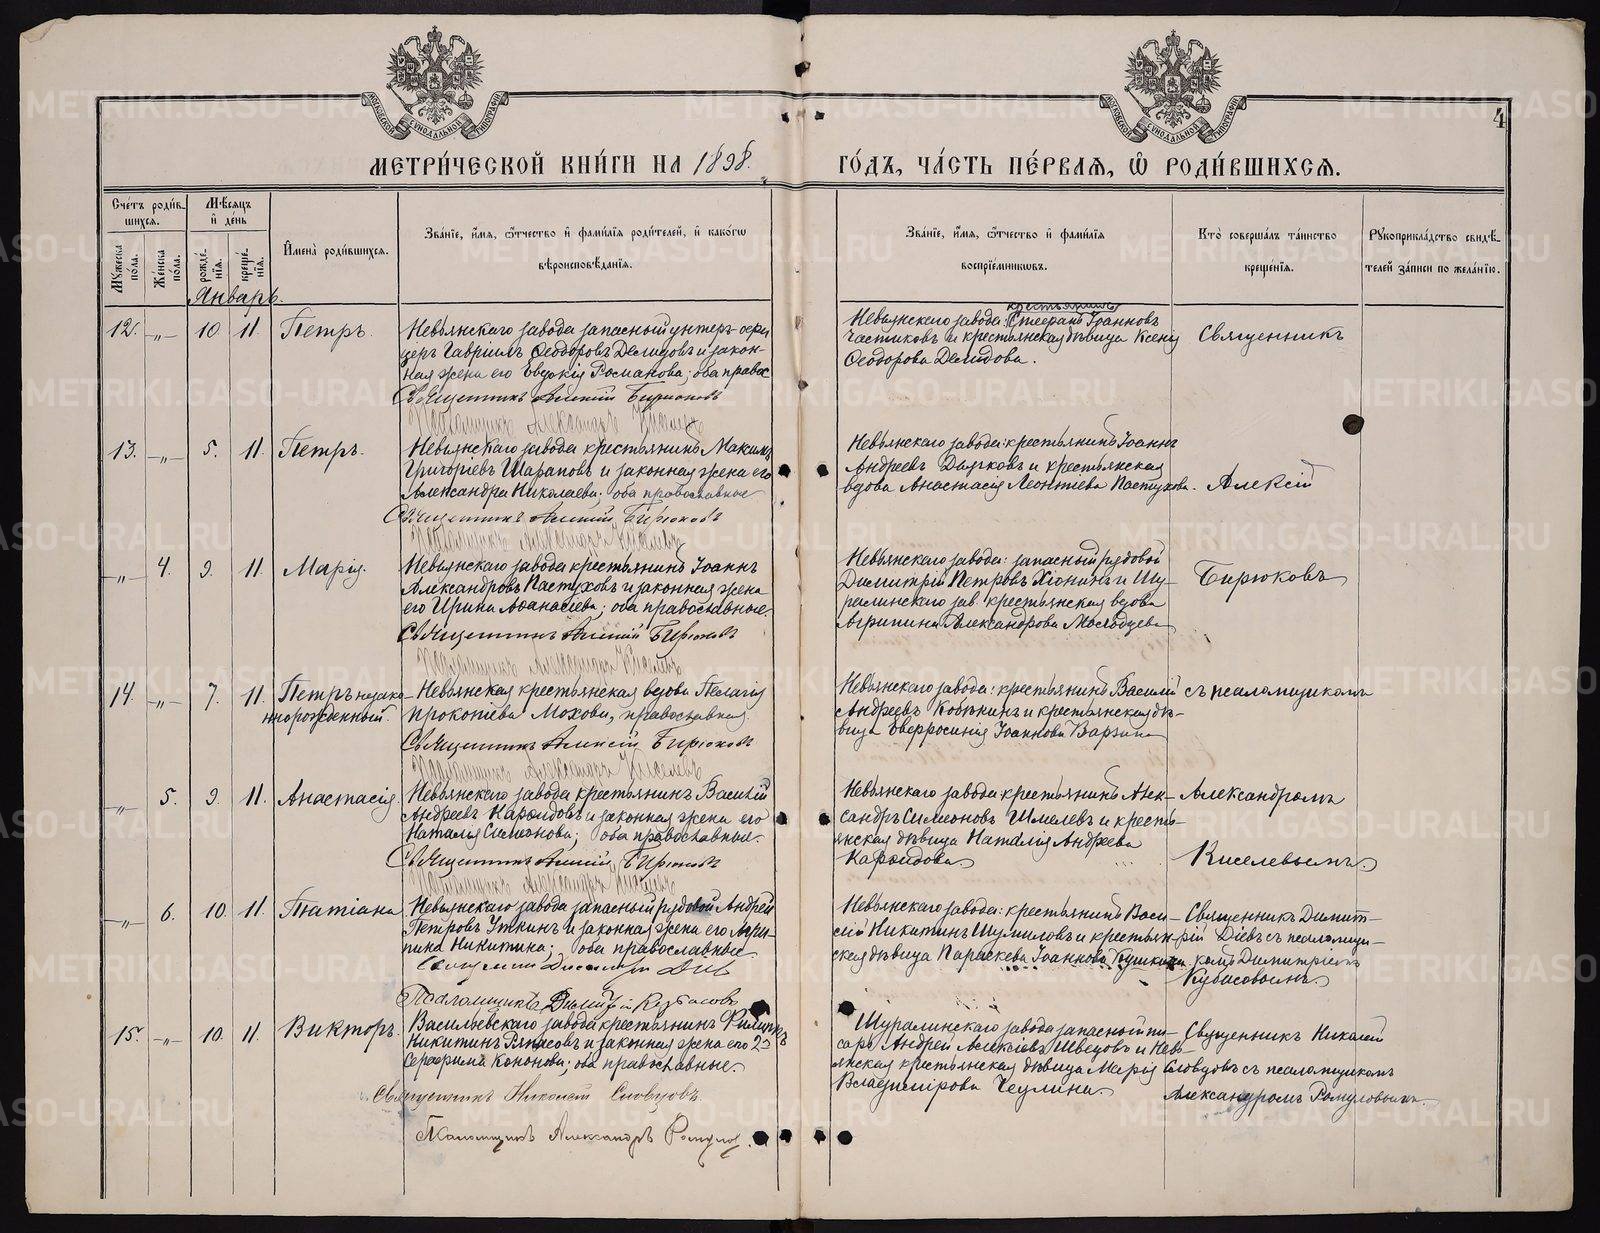 4
МЕТРИ́ЧЕСКОЙ КНИ́ГИ НА 1898.
ГО́ДЪ, ЧА́СТЬ ПЕ́РВАѦ, Ѡ҆ РОДИ́ВШИХСѦ.
Сче́тъ роди́в-
шихсѧ.
Мꙋ́жеска по́ла.
Же́нска по́ла.
Мѣ́сѧцъ
и҆ де́нь
рожде́-
нїѧ.
креще́-
нїѧ.
И҆мена̀ роди́вшихсѧ.
Зва́нїе, и҆́мѧ, ѻ҆́тчество и҆ фами́лїѧ роди́телей, и҆ како́гѡ
вѣроисповѣ́данїѧ.
Зва́нїе, и҆́мѧ, ѻ҆́тчество и҆ фами́лїѧ
воспрїе́мникѡвъ.
Кто̀ соверша́лъ та́инство
креще́нїѧ.
Рꙋкоприкла́дство свидѣ́-
телей за́писи по жела́нїю.
Январь.
12. -„- 10. 11. Петръ.
Невьянскаго завода запасный унтеръ-офи-
церъ Гавріилъ Ѳеодоровъ Демидовъ и закон-
ная жена его Евдокія Романова; оба правос
Священникъ Алексій Бирюковъ
Псаломщикъ Александръ Киселевъ
крестьянинъ
Невьянскаго завода: Стефанъ Іоанновъ
Частиковъ и крестьянская дѣвица Ксенія
Ѳеодорова Демидова.
Священникъ
13. -„- 5. 11. Петръ.
Невьянскаго завода крестьянинъ Максимъ
Григорьевъ Шараповъ и законная жена его
Александра Николаева; оба православные
Священникъ Алексій Бирюковъ
Псаломщикъ Александръ Киселевъ
Невьянскаго завода: крестьянинъ Іоаннъ
Андреевъ и крестьянская
вдова Анастасія Леонтіева Пастухова.
Алексій
-„- 4. 9. 11. Марія.
Невьянскаго завода крестьянинъ Іоаннъ
Александровъ Пастуховъ и законная жена
его Ирина Аѳанасіева; оба православные.
Священникъ Алексій Бирюковъ
Псаломщикъ Александръ Киселевъ
Невьянскаго завода: запасный рядовой
Димитрій Петровъ Хіонинъ и Шу-
ралинскаго зав. крестьянская вдова
Агрипина Александрова Молодцева
Бирюковъ
14. -„- 7. 11. Петръ незако-
ннорожденный.
Невьянская крестьянская вдова Пелагія
Прокопіева Мохова, православная.
Священникъ Алексій Бирюковъ
Псаломщикъ Александръ Киселевъ
Невьянскаго завода: крестьянинъ Василій
Андреевъ и крестьянская дѣ-
вица Евфросинія Іоаннова
съ псаломщикомъ
-„- 5. 9. 11. Анастасія
Невьянскаго завода крестьянинъ Василій
Андреевъ Карфидовъ и законная жена его
Наталія Симеонова; оба православные.
Священникъ Алексій Бирюковъ
Псаломщикъ Александръ Киселевъ
Невьянскаго завода: крестьянинъ Алек-
сандръ Симеоновъ Шмелевъ и кресть-
янская дѣвица Наталія Андреева
Карфидова.
Александромъ
Киселевымъ.
-„- 6. 10. 11. Татіана
Невьянскаго завода запасный рядовой Андрей
Петровъ Уткинъ и законная жена его Агри-
пина Никитина; оба православные
Священникъ Димитрій Діевъ
Псаломщикъ Димитрій Кубасовъ
Невьянскаго завода: крестьянинъ Васи-
лій Никитинъ Шумиловъ и крестьян-
ская дѣвица Параскева Іоаннова
Священникъ Димит-
рій Діевъ съ псаломщи-
комъ Димитріемъ
Кубасовымъ.
15. -„- 10. 11. Викторъ.
Васильевскаго завода крестьянинъ Филиппъ
Никитинъ и законная жена его 2
Серафима Кононова; оба православные.
Священникъ Николай Словцовъ.
Псаломщикъ Александръ Ромулов
Шуралинскаго завода запасной пи-
сарь Андрей Алексіевъ Швецовъ и Невь-
янская крестьянская дѣвица Марія
Владимірова Чеулина.
Священникъ Николай
Словцовъ съ псаломщикомъ
Александромъ Ромуловымъ.
METRIKI.GASO-URAL.RU